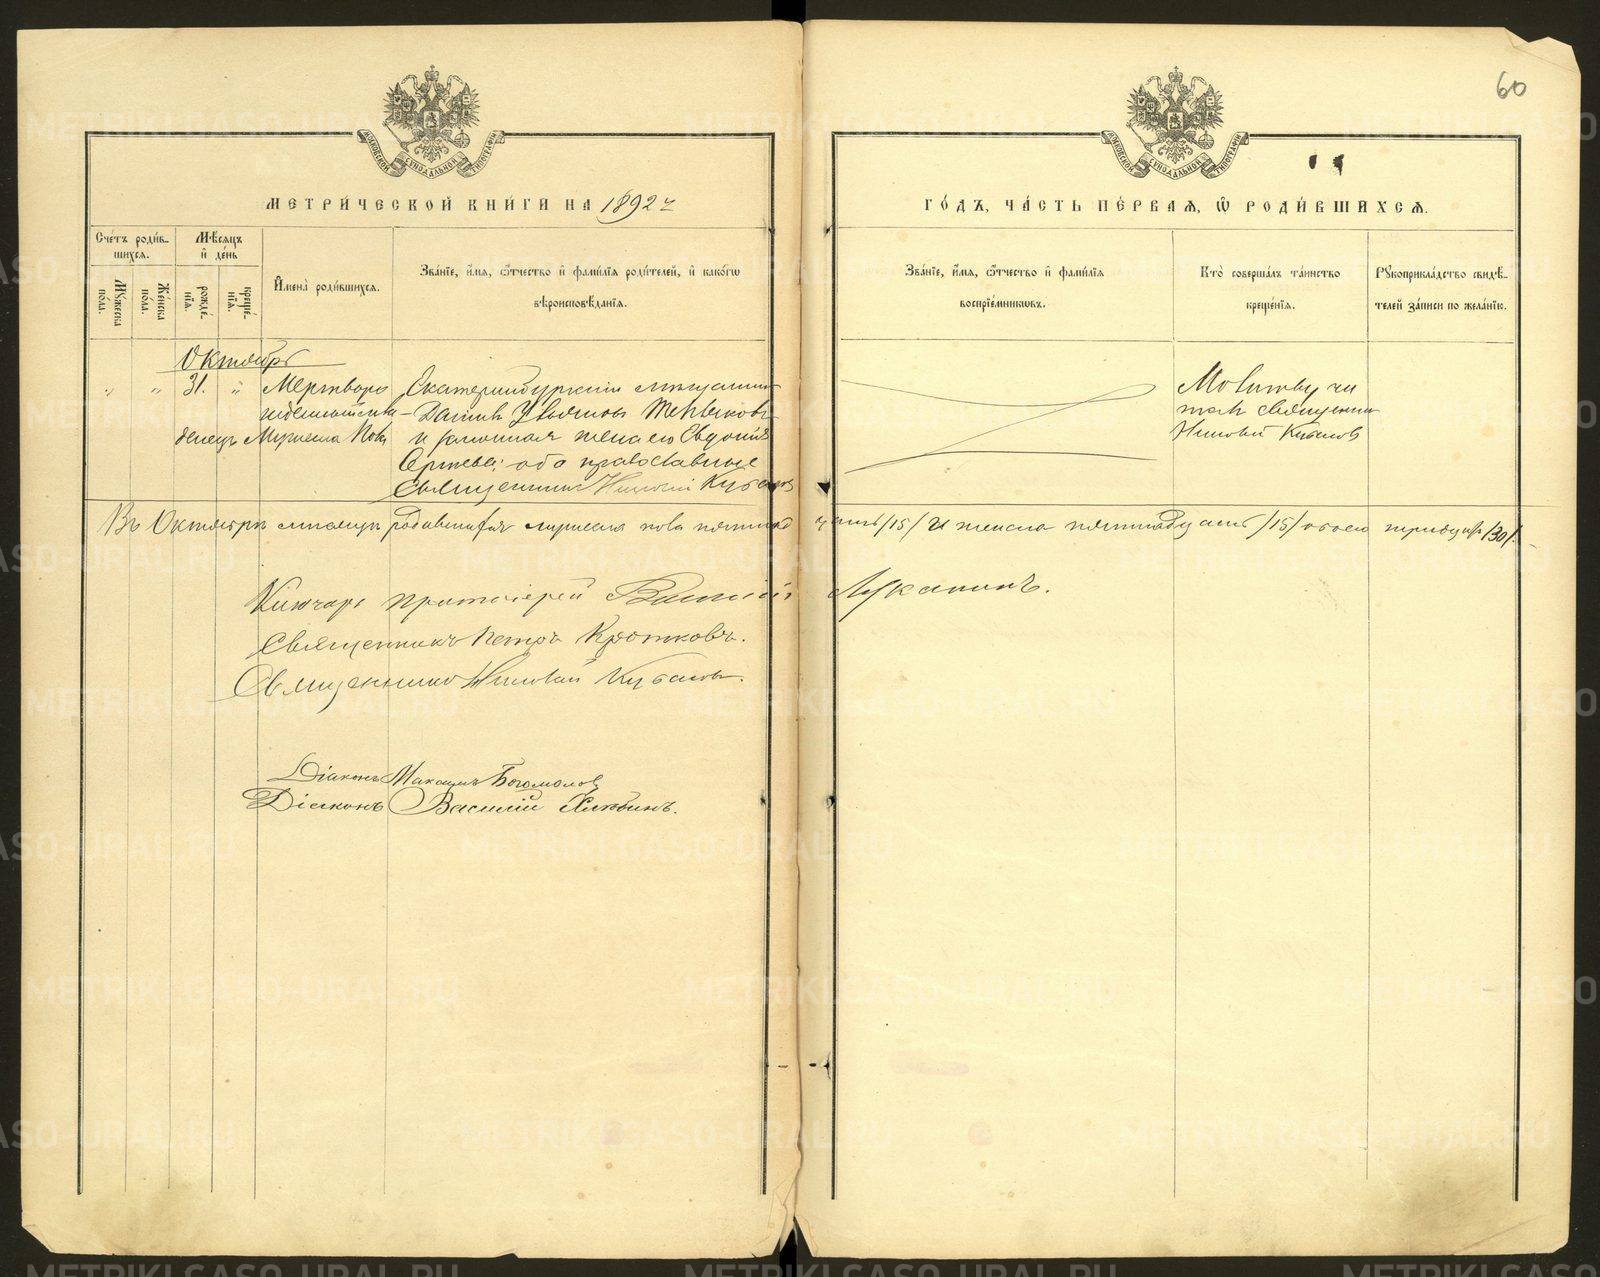 60
МОСКОВСКОЙ СѴНОДАЛЬНОЙ ТИПОГРАФІИ
МОСКОВСКОЙ СѴНОДАЛЬНОЙ ТИПОГРАФІИ
МЕТРИ́ЧЕСКОЙ КНИ́ГИ НА 1892 г
ГО́ДЪ, ЧА́СТЬ ПЕ́РВАѦ, Ѡ҆ РОДИ́ВШИХСѦ.
Сче́тъ роди́в-
шихсѧ.
Мꙋ́жеска по́ла.
Же́нска по́ла.
Мѣ́сѧцъ и҆ де́нь
рожде́-
нїѧ.
креще́-
нїѧ.
И҆мена̀ роди́вшихсѧ.
Зва́нїе, и҆́мѧ, ѻ҆́тчество и҆ фамѝлїѧ роди́телей, и҆ како́гѡ
вѣроисповѣ́данїѧ.
Зва́нїе, и҆́мѧ, ѻ҆́тчество и҆ фамѝлїѧ
воспрїе́мникѡвъ.
Кто̀ соверша́лъ та́инство
креще́нїѧ.
Рꙋкоприкла́дство свидѣ́-
телей за́писи по жела́нїю.
Октябрь
31. Мертворо
денецъ Мужеска пола
Екатеринбургскій мѣщанинъ
и законная жена его Евдокія
оба православные
Священникъ Николай
Молитву чи
талъ священник
Николай
Въ Октябрѣ мѣсяцѣ родившихся мужеска пола пятнад
цать /15/ и женска пятнадцать /15/ обоего тридцать /30/.
Ключарь протоіерей Василій Луканинъ.
Священникъ Петръ Кротковъ.
Священникъ Николай
Діаконъ Максимъ Богомолов
Діаконъ Василій Хлюбинъ.
METRIKI.GASO-URAL.RU